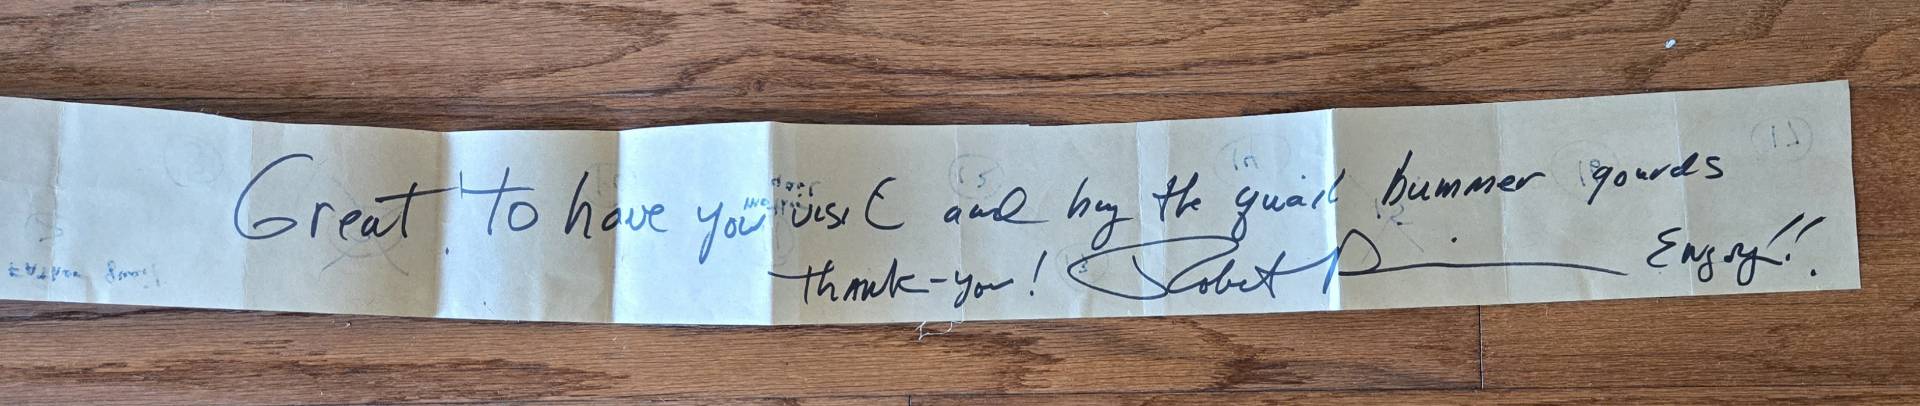 Great to have you visit and buy the quail bummer gourds
Thank-you! Robert Enjoy!!